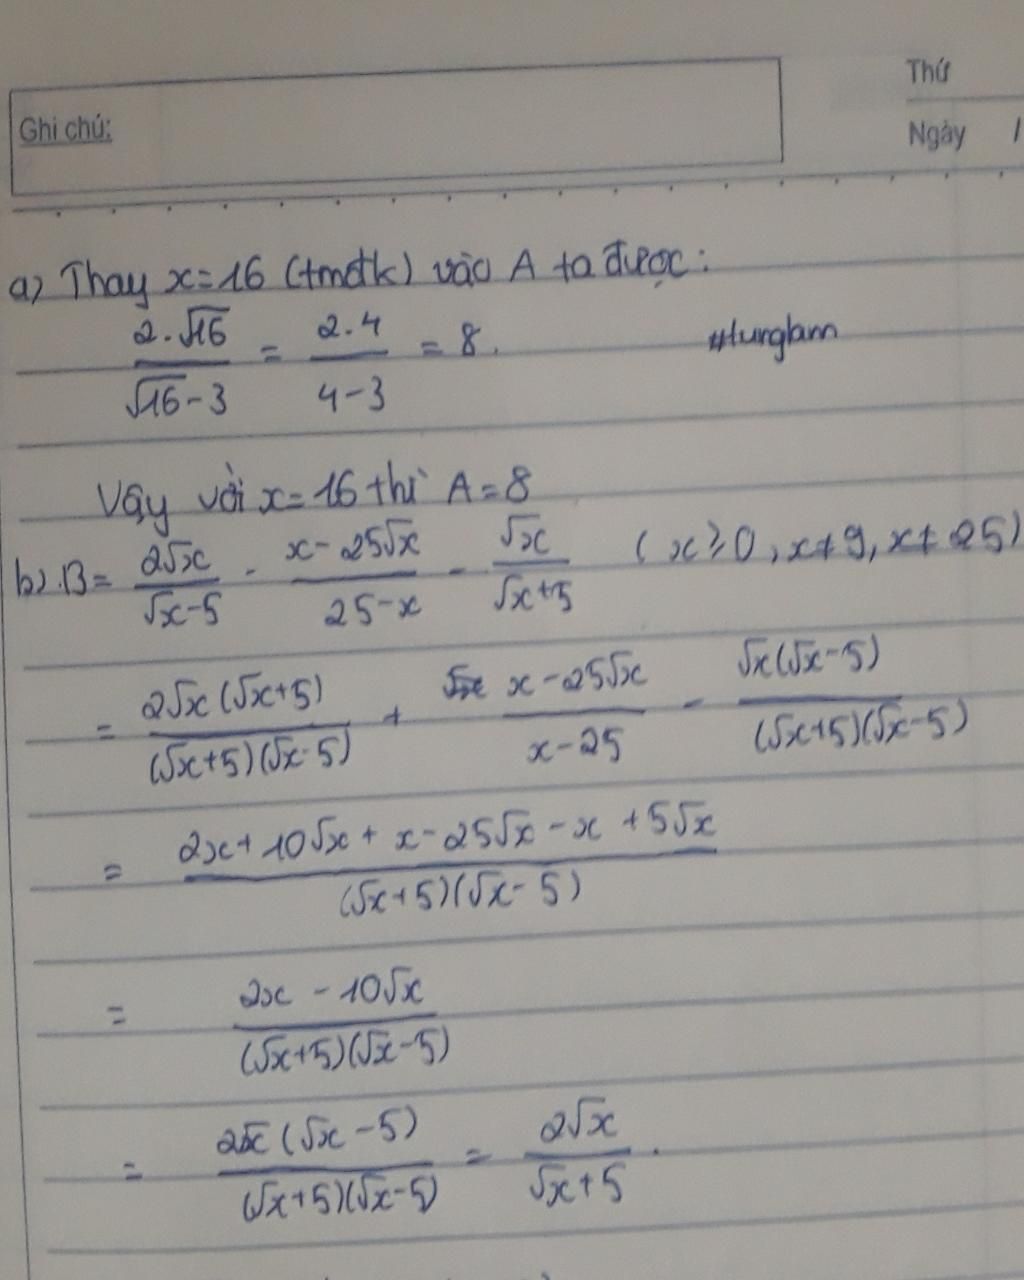 Thứ
Ghi chú:
Ngày /
a) Thay x=16 (tmđk) vào A ta được:
2.√16 / √16-3 = 2.4 / 4-3 = 8.
#tunglam
Vậy với x=16 thì A=8
b) B= 2√x / √x-5 - x-25√x / 25-x - √x / √x+5 (x≥0, x≠9, x≠25)
= 2√x(√x+5) / (√x+5)(√x-5) + x-25√x / x-25 - √x(√x-5) / (√x+5)(√x-5)
= 2x+10√x+x-25√x-x+5√x / (√x+5)(√x-5)
= 2x-10√x / (√x+5)(√x-5)
= 2√x(√x-5) / (√x+5)(√x-5) = 2√x / √x+5.